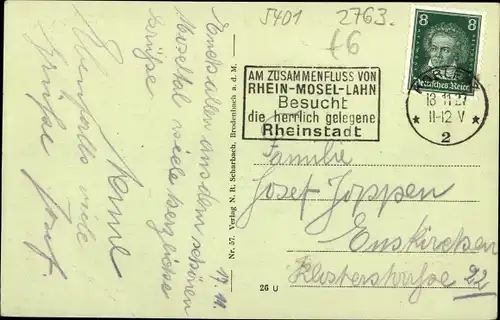 5401 2763.
£6
8 8
Deutsches Reich
18.11.27
11-12 V
* *
2
AM ZUSAMMENFLUSS VON
RHEIN-MOSEL-LAHN
Besucht
die herrlich gelegene
Rheinstadt
Familie
Josef Joppen
Euskirchen
Klosterstraße 22
Nr. 57. Verlag N. R. Scharbach, Brodenbach a. d. M.
26 U
17.11.
Euch allen aus dem schönen
Moseltal viele herzliche
Grüße
Ebenfalls viele
Grüße Josef